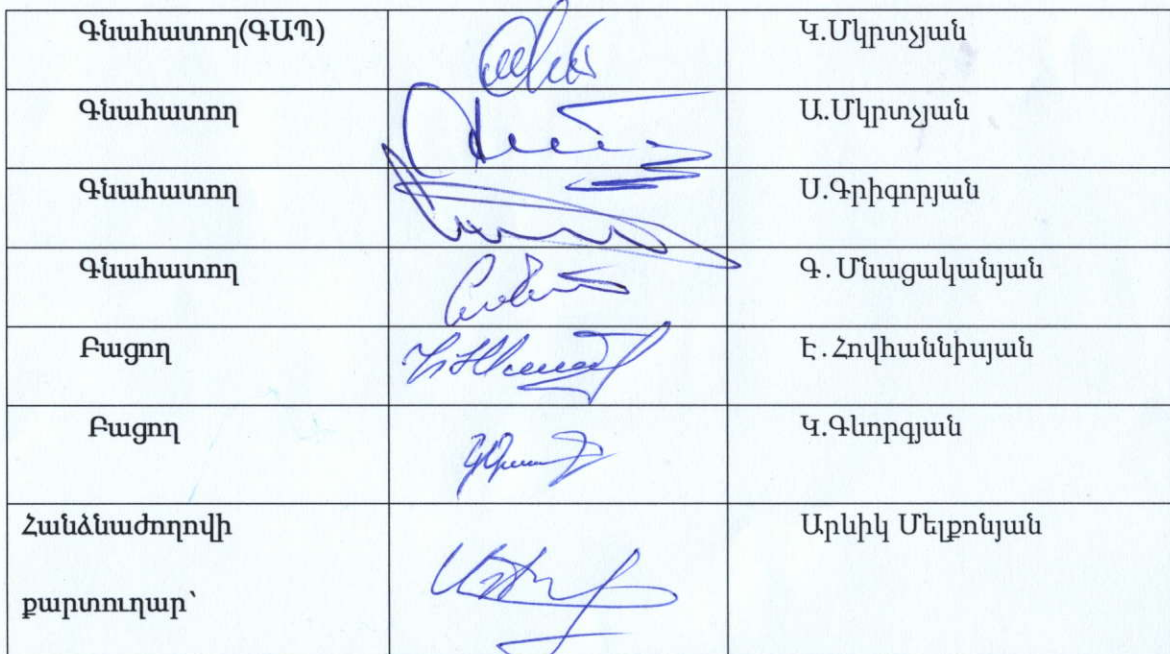 Գնահատող(ԳԱՊ) Կ.Մկրտչյան
Գնահատող Ա.Մկրտչյան
Գնահատող Ս.Գրիգորյան
Գնահատող Գ.Մնացականյան
Բացող Է.Հովհաննիսյան
Բացող Կ.Գևորգյան
Հանձնաժողովի Արևիկ Մելքոնյան
քարտուղար՝